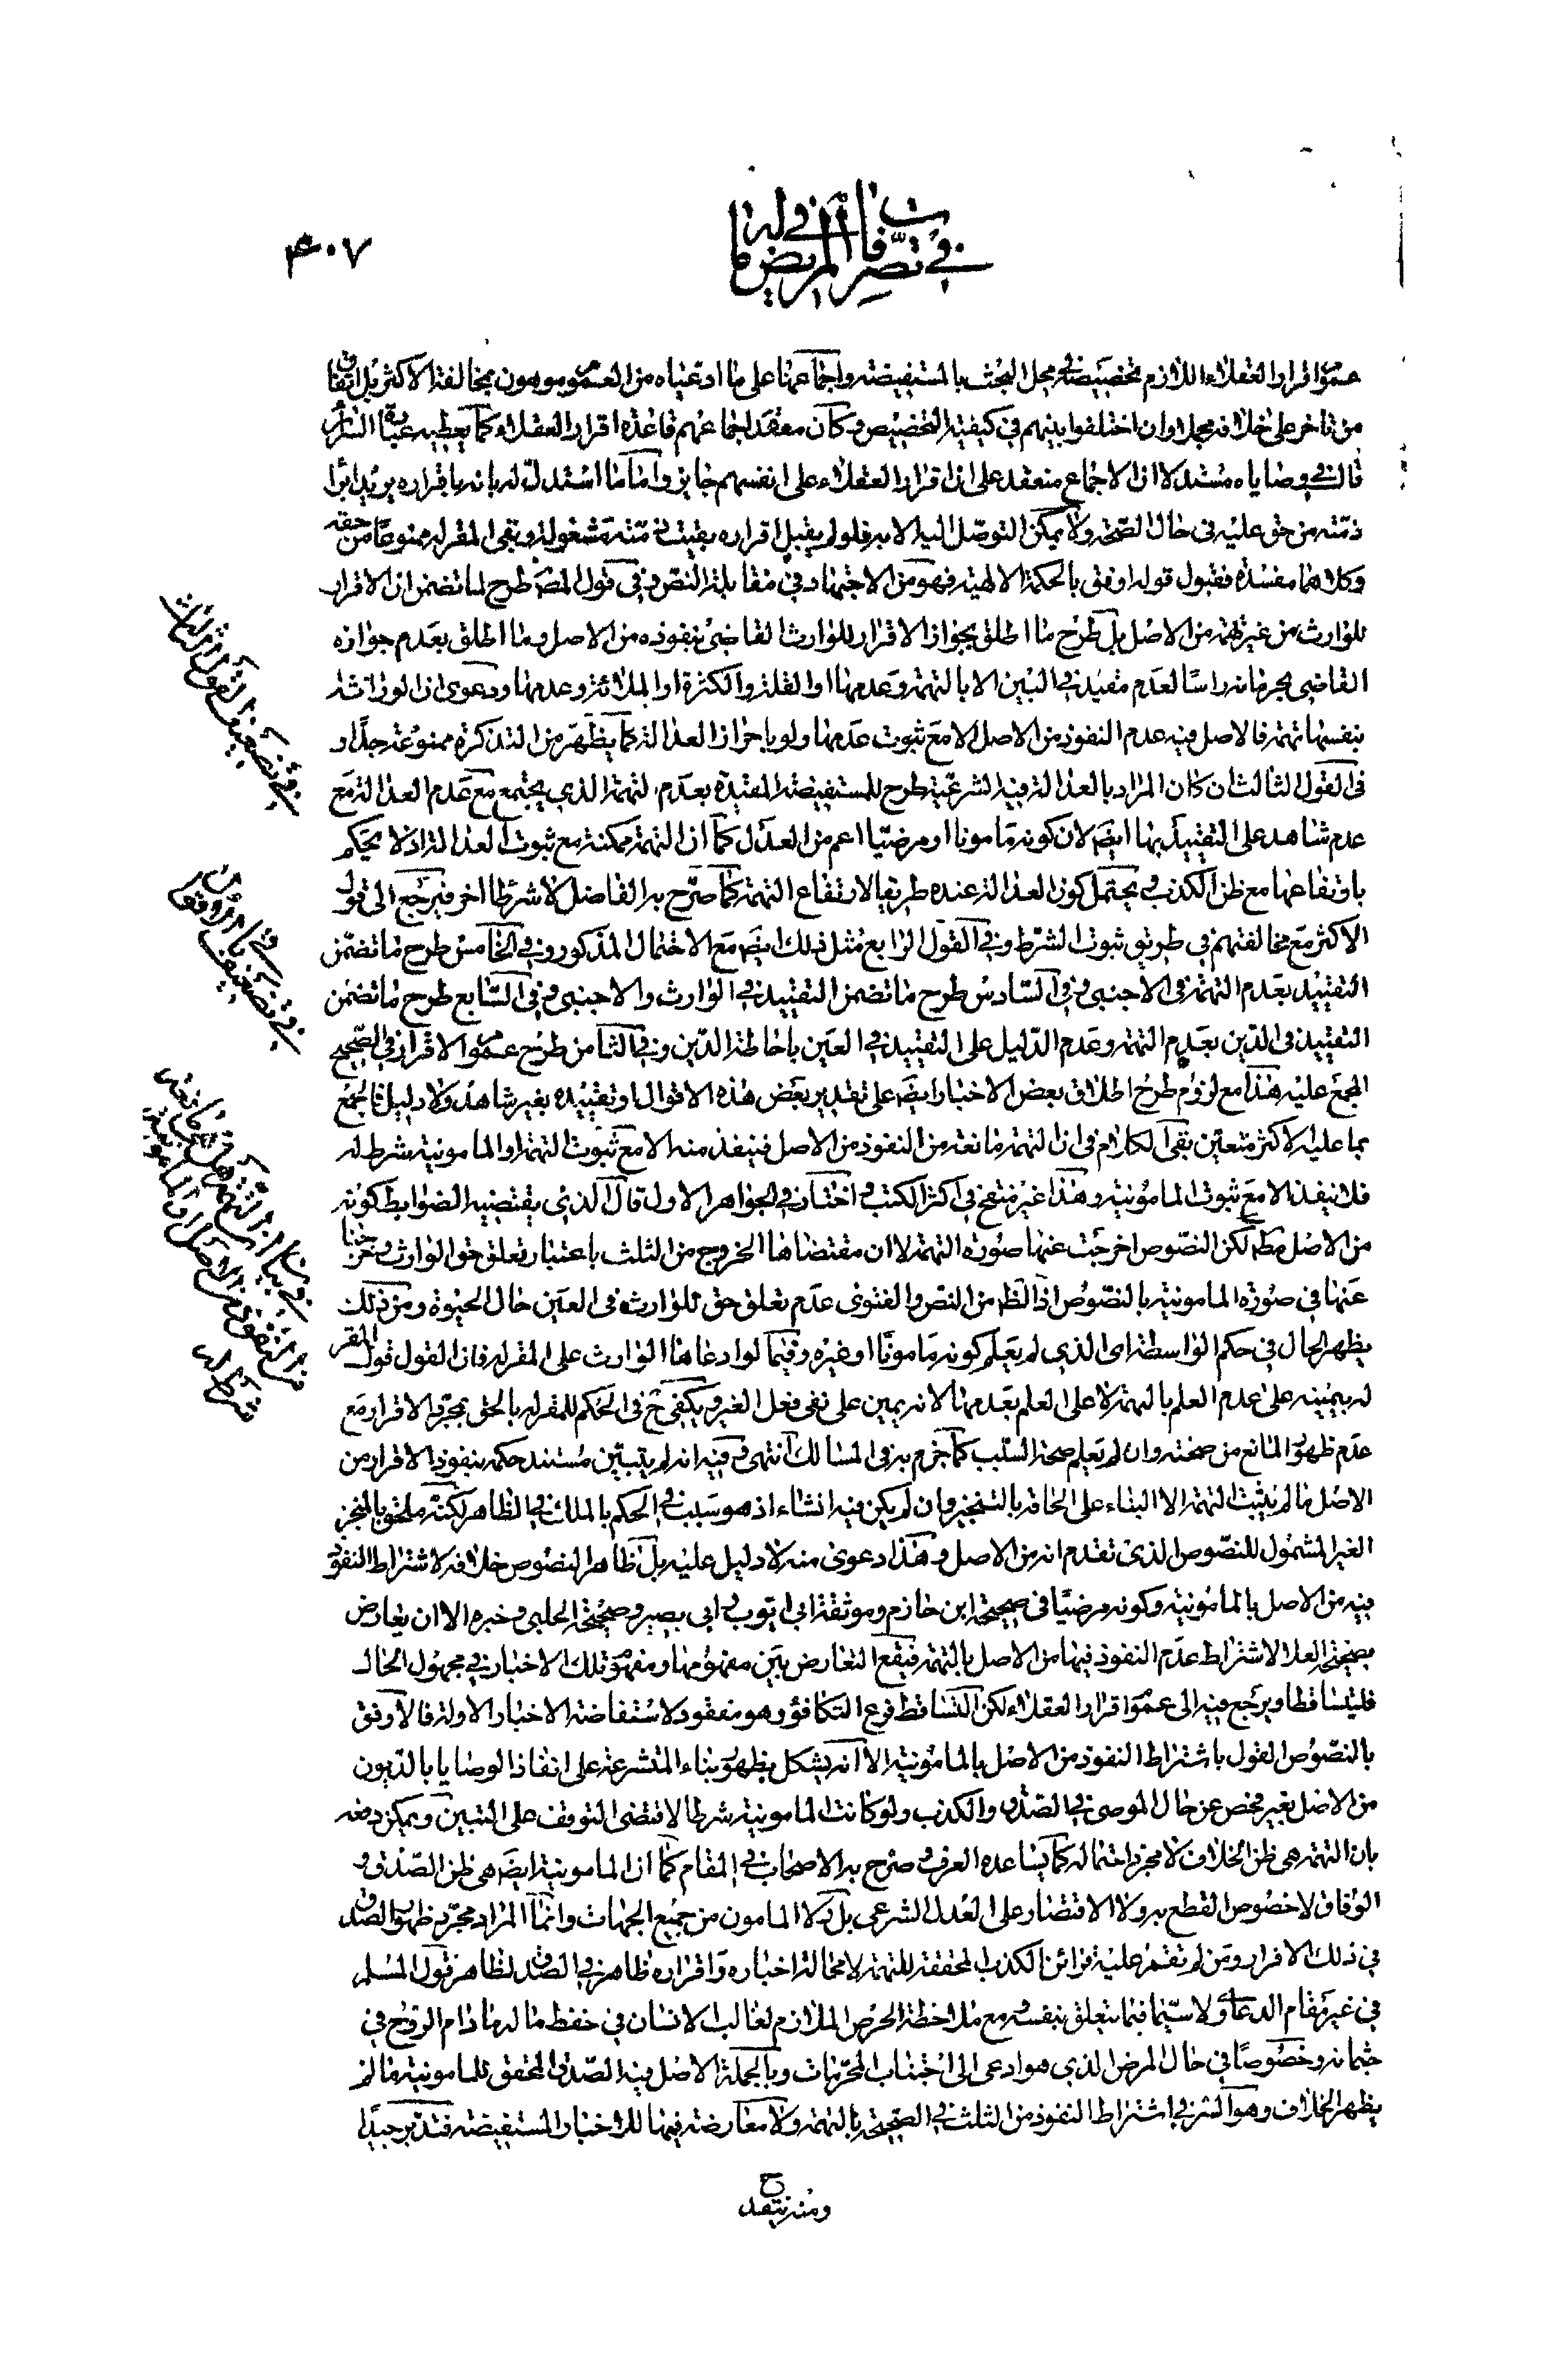 في تصرفات المريض
۴۰۷
عموم اقرار العقلاء اللازم تخصيصه في محل البحث بالمستفيضة واجماعهما على ما ادعياه من العموم موهون بمخالفة الاكثر بل اتفاق
من تاخر على خلافه مجملا وان اختلفوا بينهم في كيفية التخصيص وكان معقد اجماعهم قاعدة اقرار العقلاء كما يعطيه عبارة السرائر
قال في وصاياه مستدلا ان الاجماع منعقد على ان اقرار العقلاء على انفسهم جايز واما ما استدل له بانه باقراره يريد ابراء
ذمته من حق عليه في حال الصحة ولا يمكن التوصل اليه الا به فلو لم يقبل اقراره بقيت ذمته مشغولة وبقى المقر له ممنوعا من حقه
وكلاهما مفسدة فقبول قوله اوفق بالحكمة الالهية فهو من الاجتهاد في مقابلة النص وفي قول المصر طرح لما تضمن ان الاقرار
للوارث من غير تهمة من الاصل بل طرح ما اطلق بجواز الاقرار للوارث القاضى بنفوذه من الاصل وما اطلق بعدم جوازه
القاضى بحرمانه راسا لعدم مقيد في البين الا بالتهمة وعدمها او القلة والكثرة او الملائة وعدمها ودعوى ان الوراثة
بنفسها تهمة فالاصل فيه عدم النفوذ من الاصل الا مع ثبوت عدمها ولو باحراز العدالة كما يظهر من التذكرة ممنوعة جدا و
في القول الثالث ان كان المراد بالعدالة فيه الشرعية طرح للمستفيضة المقيدة بعدم التهمة الذي يجتمع مع عدم العدالة مع
عدم شاهد على التقييد بها ايضا لان كونه مامونا او مرضيا اعم من العدل كما ان التهمة ممكنة مع ثبوت العدالة اذ لا يحكم
بارتفاعها مع ظن الكذب ويحتمل كون العدالة عنده طريقا لارتفاع التهمة كما صرح به الفاضل لا شرطا اخر فيرجع الى قول
الاكثر مع مخالفتهم في طريق ثبوت الشرط وفي القول الرابع مثل ذلك ايضا مع الاحتمال المذكور وفي الخامس طرح ما تضمن
التقييد بعدم التهمة في الاجنبي وفي السادس طرح ما تضمن التقييد في الوارث والاجنبي وفي السابع طرح ما تضمن
التقييد في الدين بعدم التهمة وعدم الدليل على التقييد في العين باحاطة الدين وفي الثامن طرح عموم الاقرار في الصحيح
المجمع عليه هذا مع لزوم طرح اطلاق بعض الاخبار ايضا على تقدير بعض هذه الاقوال او تقييده بغير شاهد ولا دليل فالجمع
بما عليه الاكثر متعين بقى الكلام في ان التهمة مانعة من النفوذ من الاصل فينفذ منه الا مع ثبوت التهمة او المامونية شرط له
فلا ينفذ الا مع ثبوت المامونية وهذا غير منقح في اكثر الكتب واختار في الجواهر الاول قال الذي يقتضيه الضوابط كونه
من الاصل مطلقا لكن النصوص اخرجت عنها صورة التهمة لا ان مقتضاها الخروج من الثلث باعتبار تعلق حق الوارث وخرجنا
عنها في صورة المامونية بالنصوص اذ الظ من النص والفتوى عدم تعلق حق للوارث في العين حال الحيوة ومن ذلك
يظهر الحال في حكم الواسطة اى الذي لم يعلم كونه مامونا او غيره وفيما لو ادعاها الوارث على المقر له فان القول قول المقر
له بيمينه على عدم العلم بالتهمة لا على العلم بعدمها لانه يمين على نفى فعل الغير ويكفى ح في الحكم للمقر له بالحق بمجرد الاقرار مع
عدم ظهور المانع من صحته وان لم يعلم صحة السلب كما جزم به في المسالك انتهى وفيه انه لم يتبين مستند حكمه بنفوذ الاقرار من
الاصل ما لم يثبت التهمة الا البناء على الحاقه بالتنجيز وان لم يكن فيه انشاء اذ هو سبب في الحكم بالملك في الظاهر لكنه ملحق بالمنجز
الغير المشمول للنصوص الذي تقدم انه من الاصل وهذا دعوى منه لا دليل عليه بل ظاهر النصوص خلافه لاشتراط النفوذ
فيه من الاصل بالمامونية وكونه مرضيا في صحيحة ابن حازم وموثقة ابي ايوب وابي بصير وصحيحة الحلبي وخبره الا ان يعارض
بصحيحة العلا لاشتراط عدم النفوذ فيها من الاصل بالتهمة فيقع التعارض بين مفهومها ومفهوم تلك الاخبار في مجهول الحال
فليتساقطا ويرجع فيه الى عموم اقرار العقلاء لكن التساقط فرع التكافؤ وهو مفقود لاستفاضة الاخبار الاولة فالاوفق
بالنصوص القول باشتراط النفوذ من الاصل بالمامونية الا انه يشكل بظهور بناء المتشرعة على انفاذ الوصايا بالديون
من الاصل بغير فحص عن حال الموصى في الصدق والكذب ولو كانت المامونية شرطا لاقتضى التوقف على التبين ويمكن دفعه
بان التهمة هي ظن الخلاف لا مجرد احتماله كما يساعده العرف وصرح به الاصحاب في المقام كما ان المامونية ايضا هي ظن الصدق و
الوفاق لا خصوص القطع به ولا الاقتصار على العدل الشرعي بل ولا المامون من جميع الجهات وانما المراد مجرد ظهور الصدق
في ذلك الاقرار ومن لم تقم عليه قرائن الكذب المحققة للتهمة لا محالة اخباره واقراره ظاهر في الصدق لظاهر قول المسلم
في غير مقام الدعاوى ولا سيما فيما يتعلق بنفسه ومع ملاحظة الحرص الملازم لغالب الانسان في حفظ ماله ما دام الروح في
جثمانه وخصوصا في حال المرض الذي هو ادعى الى اجتناب المحرمات وبالجملة الاصل فيه الصدق المحقق للمامونية ما لم
يظهر الخلاف وهو السر في اشتراط النفوذ من الثلث في الصحيحة بالتهمة ولا معارضة فيها للاخبار المستفيضة فتدبر جيدا
ومنه ينقدح
في تضعيف القول الثالث
في تضعيف
شرط له